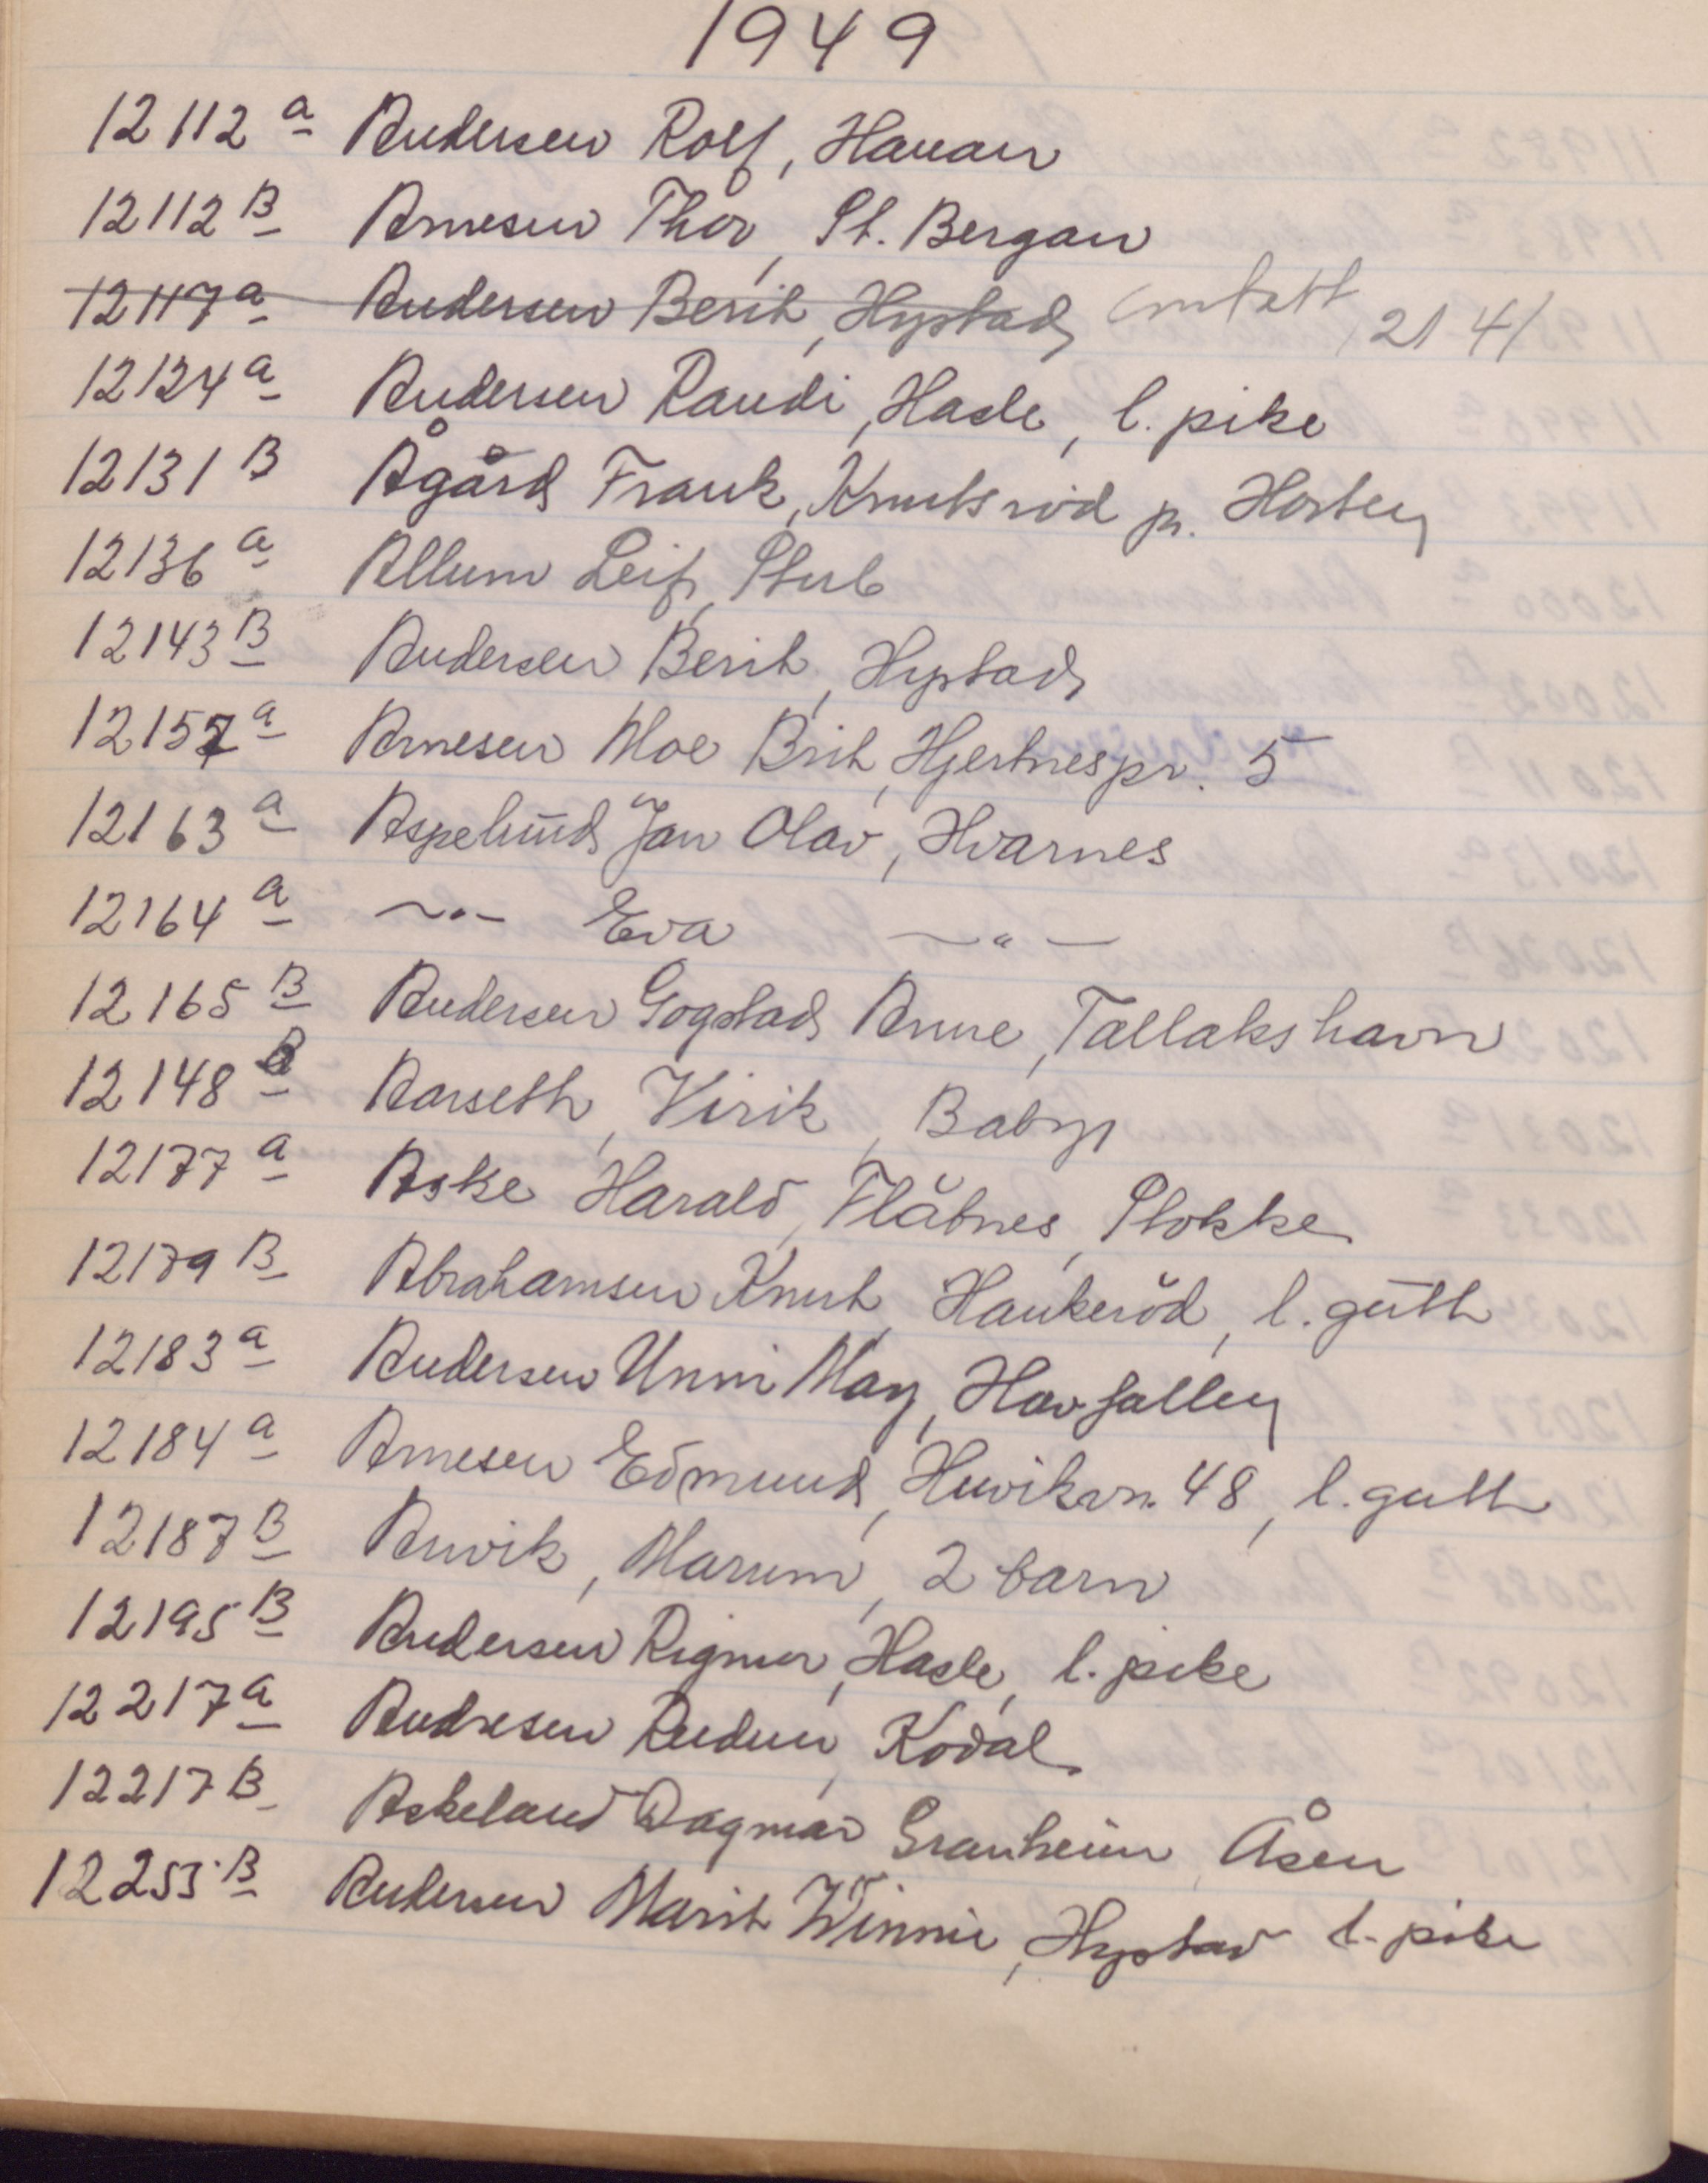 1949
12112 a Andersen Rolf, Hauan
12112 B Arnesen Thor, St. Bergan
12117 a Andersen Berit, Hystad omtatt 21/4
12124 a Andersen Randi, Hasle, l. pike
12131 B Ågård Frank, Knutsrød pr. Horten
12136 a Allum Leif, Stub
12143 B Andersen Berit, Hystad
12157 a Arnesen Moe Brit, Hjertnespr. 5
12163 a Aspelund Jan Olav, Hvarnes
12164 a -"- Eva -"-
12165 B Andersen Gogstad Anne, Tallakshavn
12148 B Aarseth, Virik, Baby
12177 a Aske Harald, Flåtnes, Stokke
12179 B Abrahamsen Knut, Haukerød, l. gutt
12183 a Andersen Unni May, Havfallen
12184 a Arnesen Edmund, Huvikvn. 48, l. gutt
12187 B Anvik, Marum, 2 barn
12195 B Andersen Rigmor, Hasle, l. pike
12217 a Andresen Reidun, Kodal
12217 B Askeland Dagmar Granheim, Åsen
12253 B Andersen Marit Winnie, Hystad l. pike